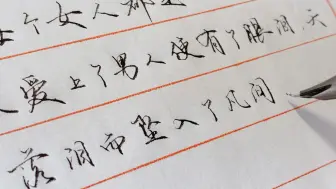 个女人都
爱上了男人便有了眼泪，天
落泪而坠入了凡间